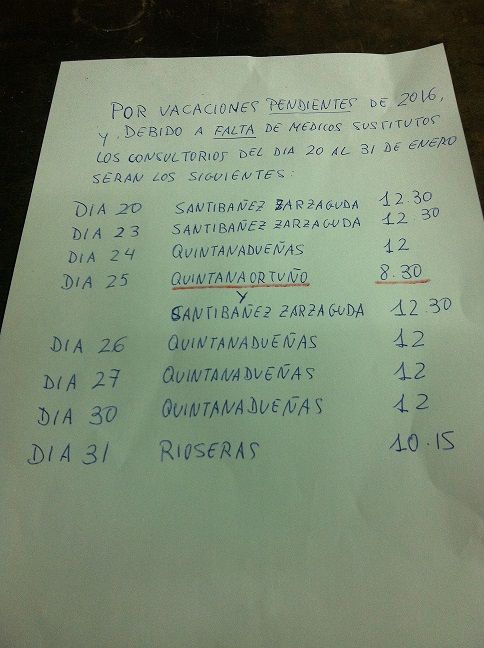 POR VACACIONES PENDIENTES DE 2016,
Y DEBIDO A FALTA DE MEDICOS SUSTITUTOS
LOS CONSULTORIOS DEL DIA 20 AL 31 DE ENERO
SERAN LOS SIGUIENTES:
DIA 20 SANTIBAÑEZ ZARZAGUDA 12.30
DIA 23 SANTIBAÑEZ ZARZAGUDA 12.30
DIA 24 QUINTANADUEÑAS 12
DIA 25 QUINTANAORTUÑO 8.30
Y
SANTIBAÑEZ ZARZAGUDA 12.30
DIA 26 QUINTANADUEÑAS 12
DIA 27 QUINTANADUEÑAS 12
DIA 30 QUINTANADUEÑAS 12
DIA 31 RIOSERAS 10.15